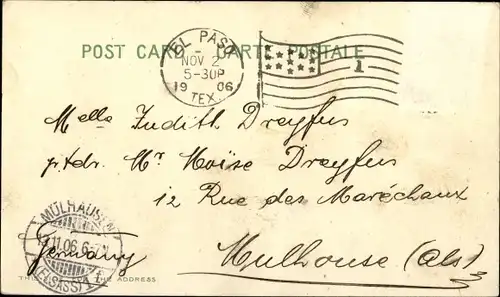 POST CARD - CARTE POSTALE
EL PASO
NOV 2
5-30P
1906
TEX.
1
Melle Judith Dreyfus
Mr Moïse Dreyfus
12 Rue des Maréchaux
Mulhouse (Als)
Germany
MÜLHAUSEN
11.06.6-7
(ELSASS)
THE ADDRESS